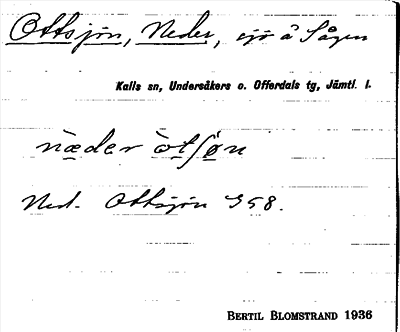 Ottsjön, Neder, sjö å Sågen
Kalls sn, Undersåkers o. Offerdals tg, Jämtl. l.
næder òtʃøn
Ned. Ottsjön 958.
BERTIL BLOMSTRAND 1936